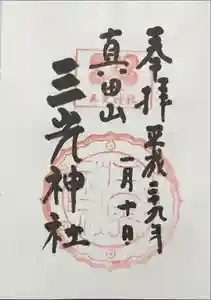 奉拝
平成二十九年
一月十日
真田山
三光神社